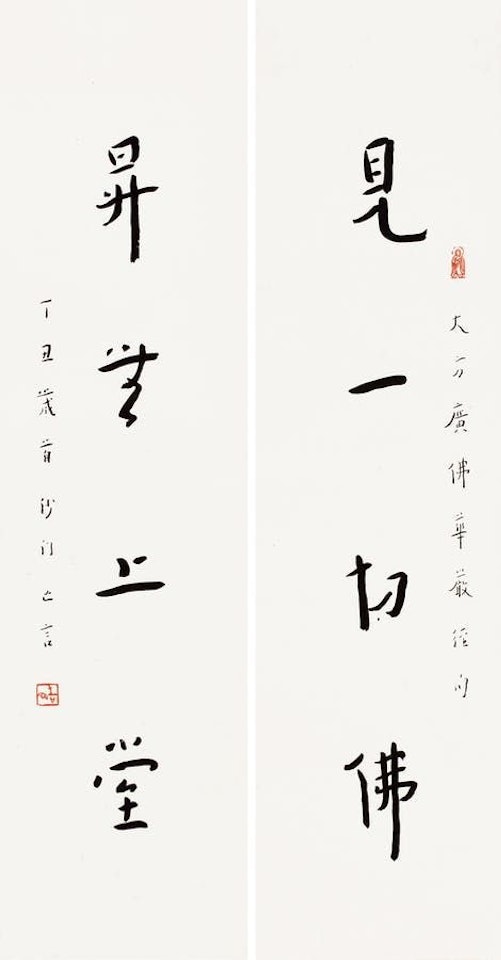 大方廣佛華嚴經句
見一切佛
昇無上堂
丁丑歲首沙門亡言